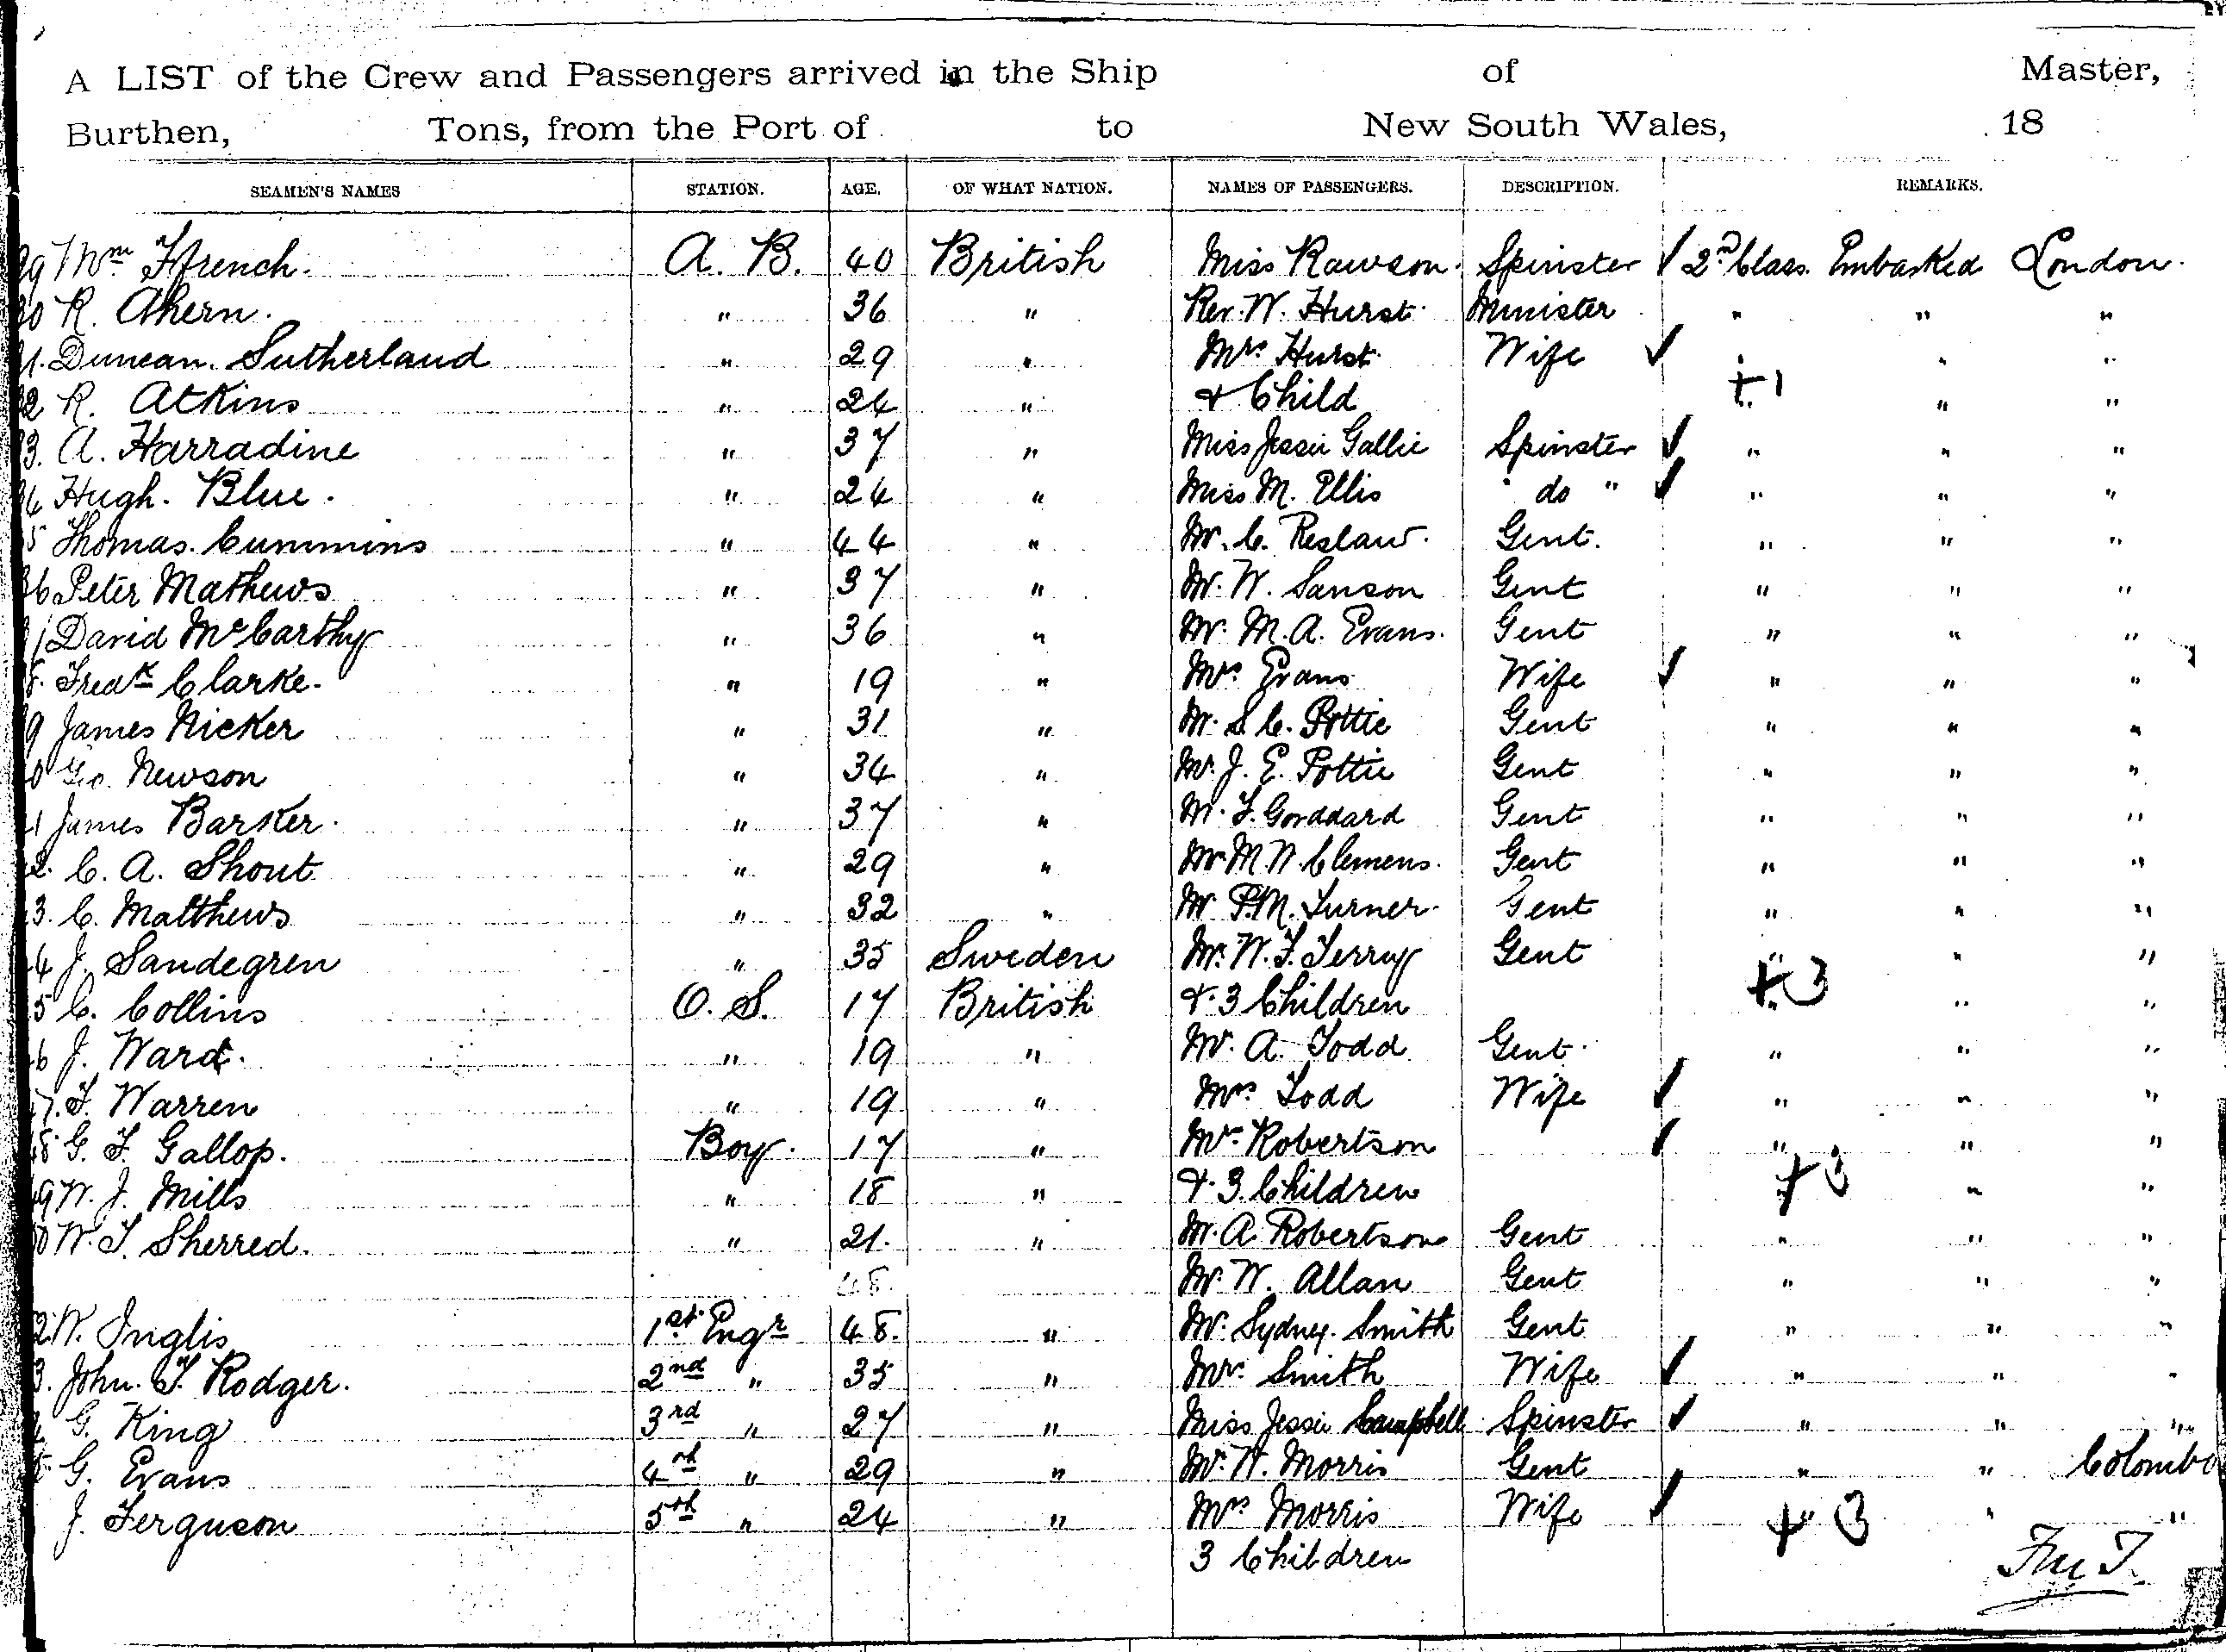 A LIST of the Crew and Passengers arrived in the Ship of Master,
Burthen, Tons, from the Port of to New South Wales, 18
SEAMEN'S NAMES STATION. AGE. OF WHAT NATION. NAMES OF PASSENGERS. DESCRIPTION. REMARKS.
29 Wm Ffrench. A. B. 40 British Miss Rawson. Spinster ✓ 2nd Class. Embarked London.
30 R. Ahern. " 36 " Rev. W. Hurst. Minister " " "
31. Duncan. Sutherland " 29 " Mrs Hurst. Wife ✓ " " "
32 R. Atkins " 24 " & Child +1 " " "
33. A. Harradine " 37 " Miss Jessie Gallie Spinster ✓ " " "
34 Hugh. Blue. " 24 " Miss M. Ellis do " ✓ " " "
35 Thomas. Cummins " 44 " Mr. C. Reslaw. Gent. " " "
36 Peter Mathews " 37 " Mr. W. Sanson Gent " " "
37 David McCarthy " 36 " Mr. M. A. Evans. Gent " " "
38. Fredk Clarke. " 19 " Mrs Evans Wife ✓ " " "
39 James Nicker " 31 " Mr. S. C. Pottie Gent " " "
40 Geo. Newson " 34 " Mr. J. E. Pottie Gent " " "
41 James Barker. " 37 " Mr. F. Gorddard Gent " " "
42. C. A. Shout " 29 " Mr. M. N. Clemens. Gent " " "
43. C. Matthews " 32 " Mr P. M. Turner. Gent " " "
44 J. Sandegren " 35 Sweden Mr. W. F. Terry Gent " " "
45 C. Collins O. S. 17 British & 3 Children +3 " " "
46 J. Ward. " 19 " Mr. A. Todd Gent. " " "
47. F. Warren " 19 " Mrs Todd Wife ✓ " " "
48 G. F. Gallop. Boy. 17 " Mrs Robertson ✓ " " "
49 W. J. Mills " 18 " & 3 Children +3 " " "
50 W. T. Sherred. " 21. " Mr. A. Robertson Gent " " "
48. Mr. W. Allan Gent " " "
52 W. Inglis 1st Engr 48. " Mr. Sydney. Smith Gent " " "
53. John. T. Rodger. 2nd " 35 " Mrs. Smith Wife ✓ " " "
54 G. King 3rd " 27 " Miss Jessie Campbell Spinster ✓ " " "
55 G. Evans 4th " 29 " Mr. W. Morris Gent " " Colombo
J. Ferguson 5th " 24 " Mrs Morris Wife ✓ +3 " "
3 Children